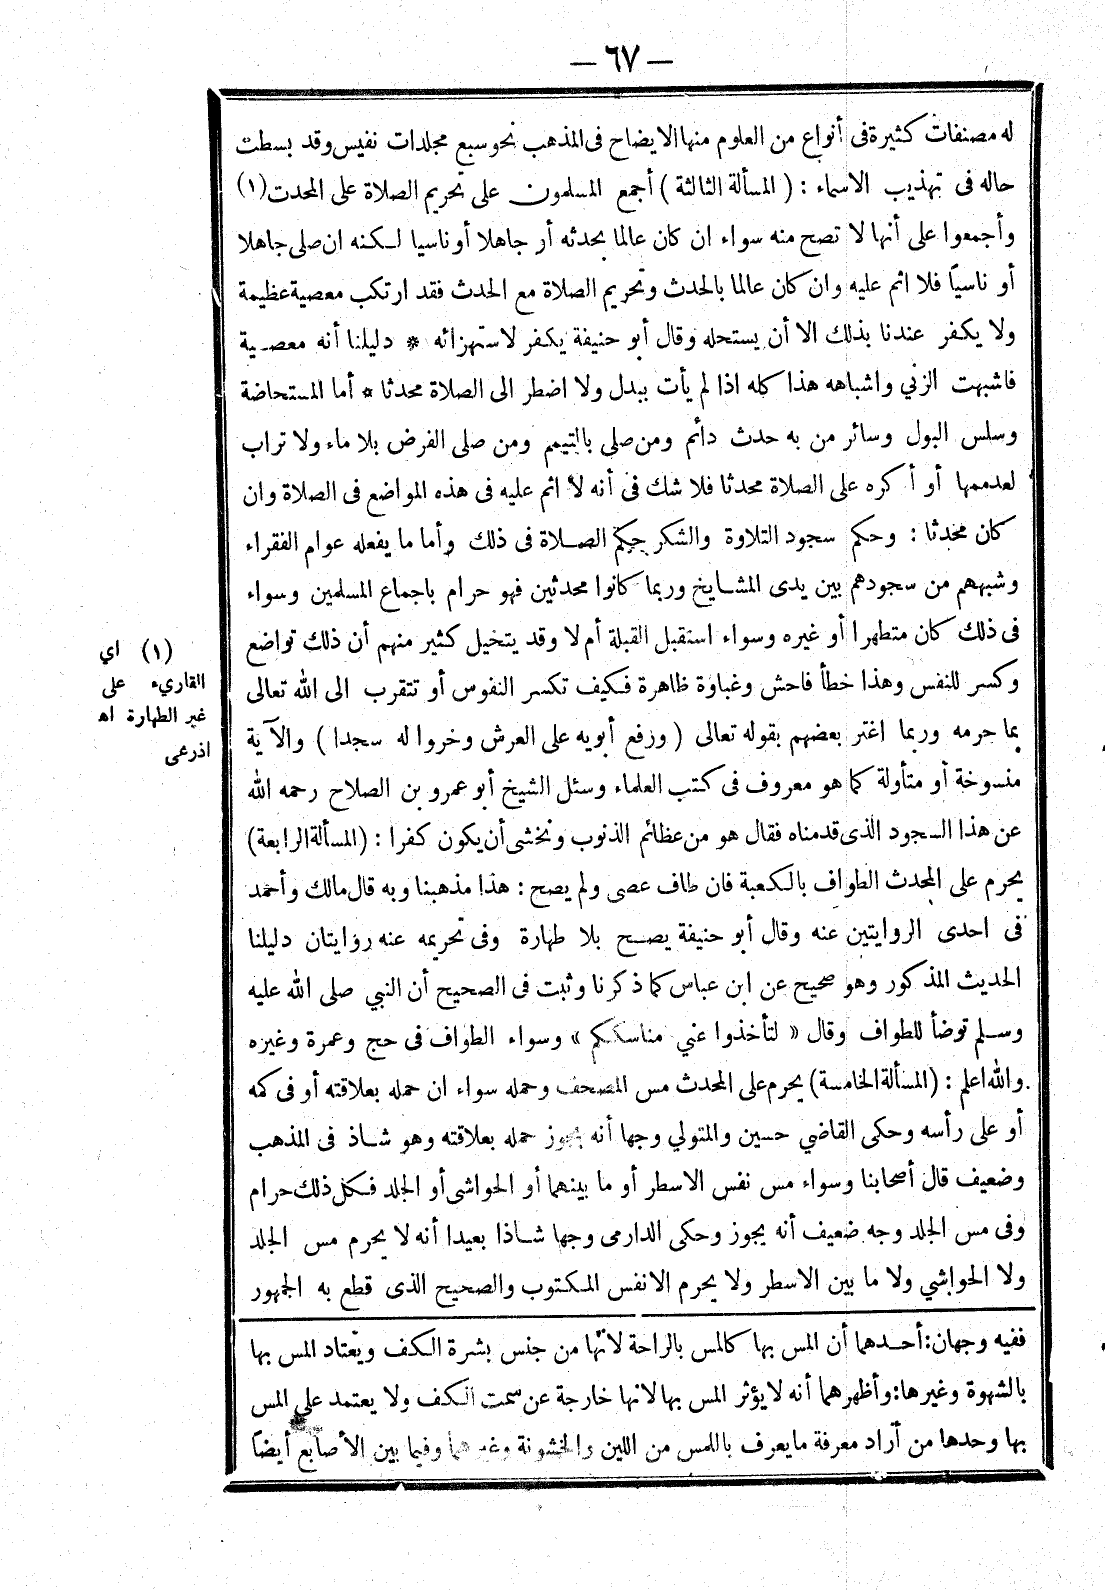 — ٦٧ —
له مصنفات كثيرة فى أنواع من العلوم منها الايضاح فى المذهب نحو سبع مجلدات نفيس وقد بسطت
حاله فى تهذيب الاسماء : ( المسألة الثالثة ) أجمع المسلمون على تحريم الصلاة على المحدث (١)
وأجمعوا على أنها لا تصح منه سواء ان كان عالما بحدثه أو جاهلا أو ناسيا لكنه ان صلى جاهلا
أو ناسيًا فلا اثم عليه وان كان عالما بالحدث وتحريم الصلاة مع الحدث فقد ارتكب معصية عظيمة
ولا يكفر عندنا بذلك الا أن يستحله وقال أبو حنيفة يكفر لاستهزائه * دليلنا أنه معصية
فاشبهت الزني واشباهه هذا كله اذا لم يأت ببدل ولا اضطر الى الصلاة محدثا * أما المستحاضة
وسلس البول وسائر من به حدث دائم ومن صلى بالتيمم ومن صلى الفرض بلا ماء ولا تراب
لعدمها أو أكره على الصلاة محدثا فلا شك فى أنه لا اثم عليه فى هذه المواضع فى الصلاة وان
كان محدثا : وحكم سجود التلاوة والشكر حكم الصلاة فى ذلك وأما ما يفعله عوام الفقراء
وشبههم من سجودهم بين يدى المشايخ وربما كانوا محدثين فهو حرام باجماع المسلمين وسواء
فى ذلك كان متطهرا أو غيره وسواء استقبل القبلة أم لا وقد يتخيل كثير منهم أن ذلك تواضع
وكسر للنفس وهذا خطأ فاحش وغباوة ظاهرة فكيف تكسر النفوس أو تتقرب الى الله تعالى
بما حرمه وربما اغتر بعضهم بقوله تعالى ( ورفع أبويه على العرش وخروا له سجدا ) والآية
منسوخة أو متأولة كما هو معروف فى كتب العلماء وسئل الشيخ أبو عمرو بن الصلاح رحمه الله
عن هذا السجود الذى قدمناه فقال هو من عظائم الذنوب ونخشى أن يكون كفرا : (المسألة الرابعة)
يحرم على المحدث الطواف بالكعبة فان طاف عصى ولم يصح : هذا مذهبنا وبه قال مالك وأحمد
فى احدى الروايتين عنه وقال أبو حنيفة يصح بلا طهارة وفى تحريمه عنه روايتان دليلنا
الحديث المذكور وهو صحيح عن ابن عباس كما ذكرنا وثبت فى الصحيح أن النبي صلى الله عليه
وسلم توضأ للطواف وقال « لتأخذوا عني مناسككم » وسواء الطواف فى حج وعمرة وغيره
والله اعلم : (المسألة الخامسة) يحرم على المحدث مس المصحف وحمله سواء ان حمله بعلاقته أو فى كمه
أو على رأسه وحكى القاضي حسين والمتولي وجها أنه يجوز حمله بعلاقته وهو شاذ فى المذهب
وضعيف قال أصحابنا وسواء مس نفس الاسطر أو ما بينهما أو الحواشى أو الجلد فكل ذلك حرام
وفى مس الجلد وجه ضعيف أنه يجوز وحكى الدارمى وجها شاذا بعيدا أنه لا يحرم مس الجلد
ولا الحواشي ولا ما بين الاسطر ولا يحرم الا نفس المكتوب والصحيح الذى قطع به الجمهور
(١) اي
القاريء على
غير الطهارة اه
اذرعى
ففيه وجهان: أحدهما أن المس بها كالمس بالراحة لانها من جنس بشرة الكف ويعتاد المس بها
بالشهوة وغيرها: وأظهرهما أنه لا يؤثر المس بها لانها خارجة عن سمت الكف ولا يعتمد على المس
بها وحدها من أراد معرفة ما يعرف باللمس من اللين والخشونة وغيرهما وفيما بين الأصابع أيضًا